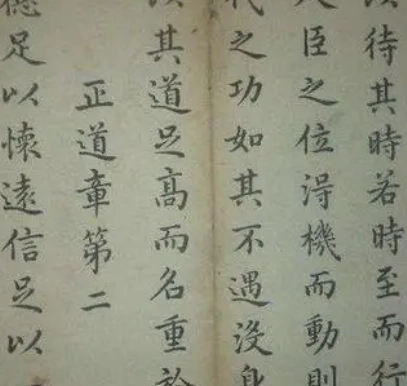 待其時若時至而行
臣之位得機而動則
之功如其不遇沒身
其道足高而名重於
正道章第二
德足以懷遠信足以